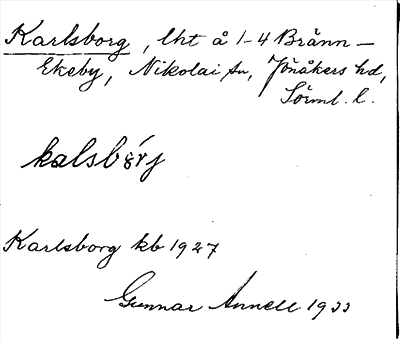 Karlsborg, lht å 1-4 Bränn-
Ekeby, Nikolai sn, Jönåkers hd,
Sörml. l.
kalsbórj
Karlsborg kb 1927
Gunnar Annell 1933